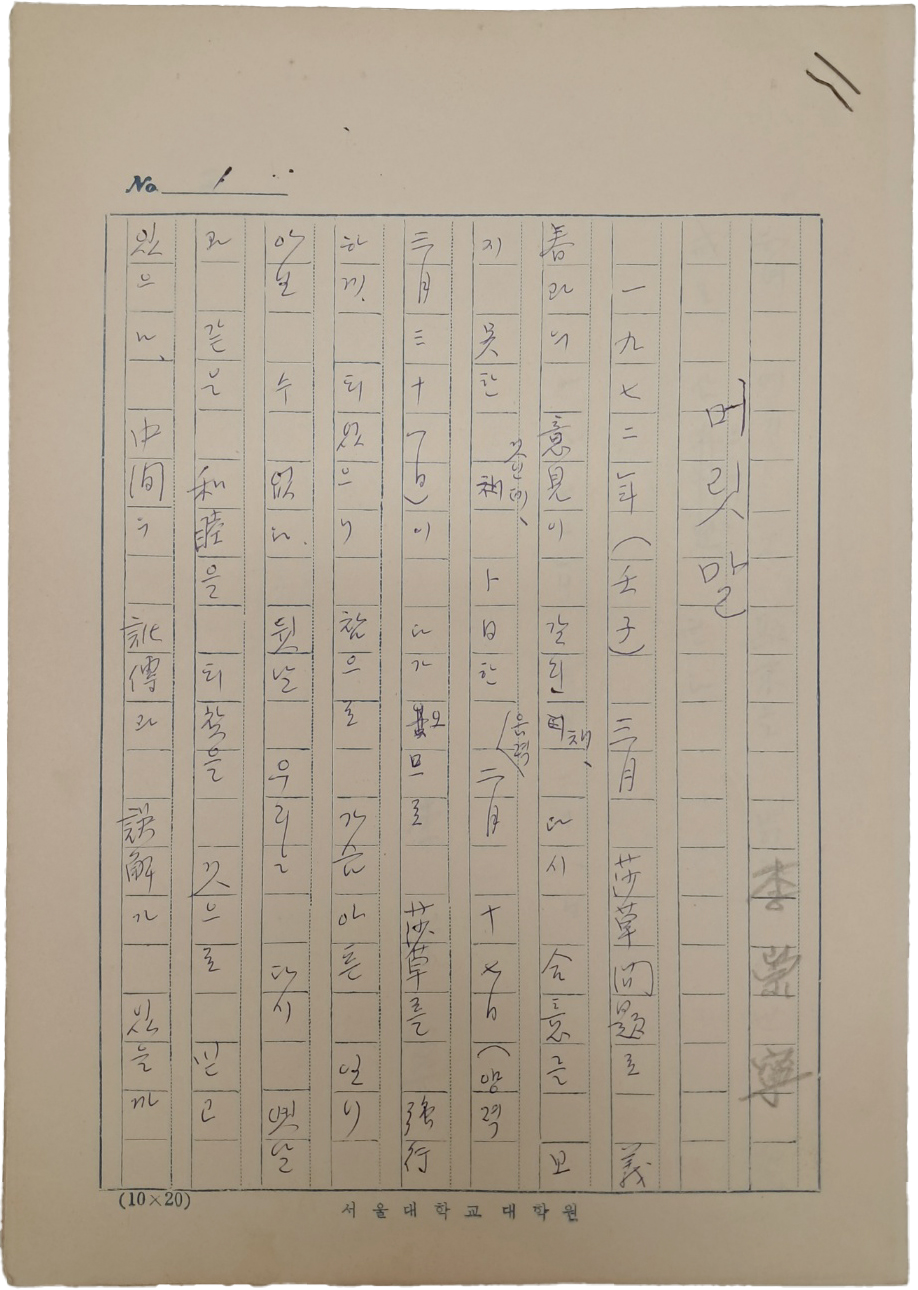 No. 1
李崇寧
머릿말
一九七二年(壬子) 三月 莎草問題로 義
春과의 意見이 갈린 채, 다시 合意를 보
지 못한 卜日한 (음력 二月 十七日(양력
三月 三十一日)이 다가오므로 莎草를 強行
하게 되었으니 참으로 가슴아픈 일이
아닐 수 없다. 뒷날 우리는 다시 옛날
과 같은 和睦을 되찾을 것으로 믿고
있으나, 中間의 訛傳과 誤解가 있을까
(10×20)
서울대학교대학원